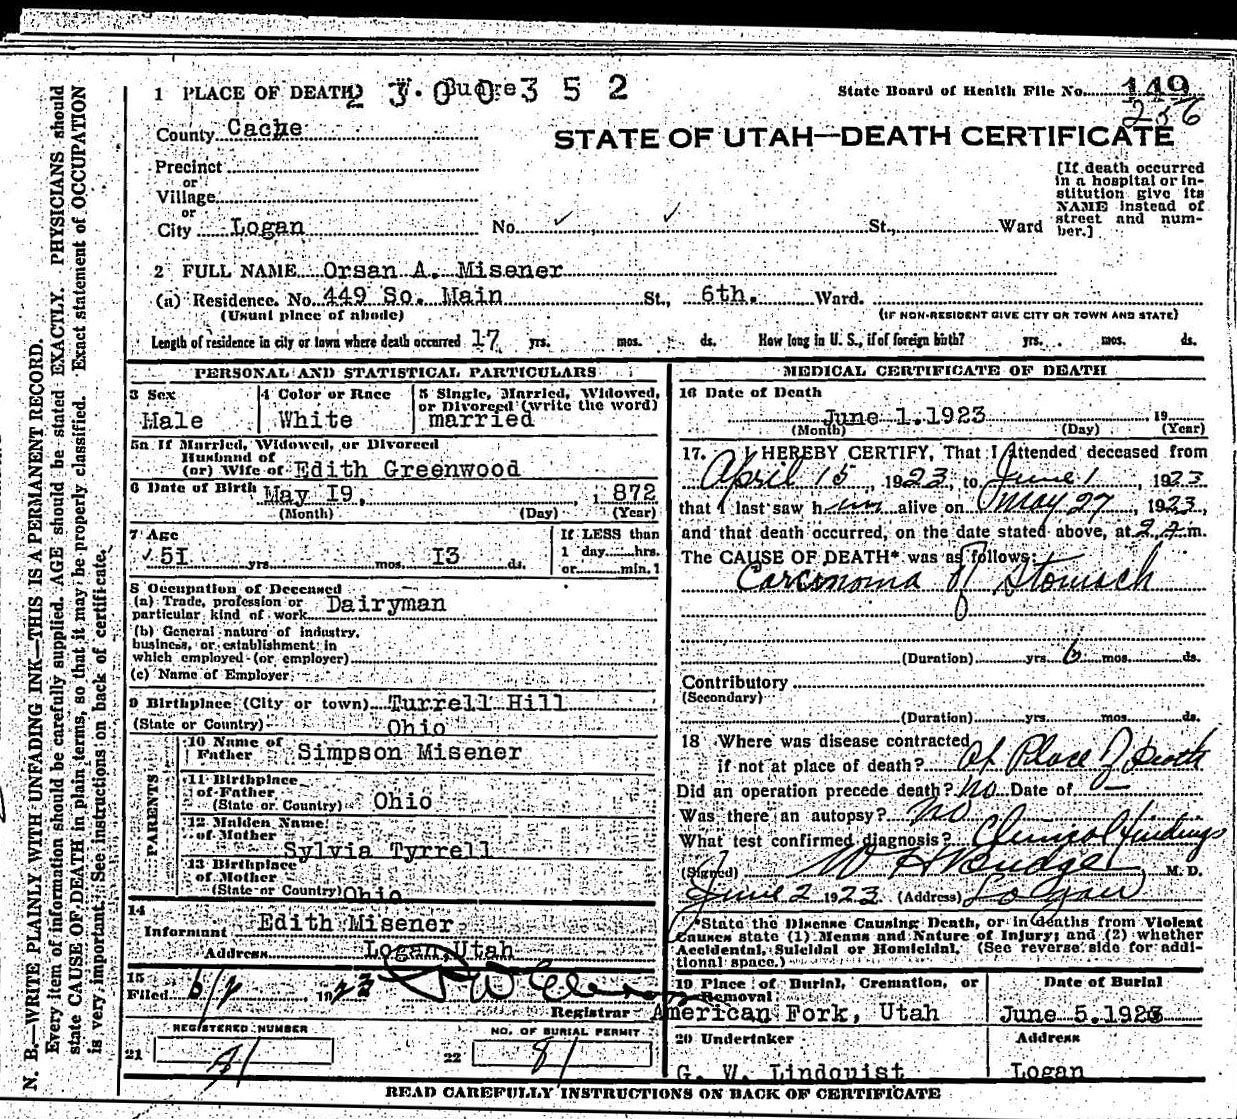 1 PLACE OF DEATH 2 3 0 0 0 3 5 2
State Board of Health File No. 149
236
County Cache
STATE OF UTAH—DEATH CERTIFICATE
Precinct
or
Village
or
City Logan No. St., Ward
[If death occurred in a hospital or in-
stitution give its
NAME instead of
street and num-
ber.]
2 FULL NAME Orsan A. Misener
(a) Residence. No. 449 So. Main St., 6th. Ward.
(Usual place of abode) (IF NON-RESIDENT GIVE CITY OR TOWN AND STATE)
Length of residence in city or town where death occurred 17 yrs. mos. ds. How long in U. S., if of foreign birth? yrs. mos. ds.
PERSONAL AND STATISTICAL PARTICULARS
3 Sex
Male
4 Color or Race
White
5 Single, Married, Widowed,
or Divorced (write the word)
married
5a If Married, Widowed, or Divorced
Husband of
(or) Wife of Edith Greenwood
6 Date of Birth May I9, 1872
(Month) (Day) (Year)
7 Age
5I yrs. mos. I3 ds.
If LESS than
1 day hrs.
or min.
8 Occupation of Deceased
(a) Trade, profession or
particular kind of work Dairyman
(b) General nature of industry,
business, or establishment in
which employed (or employer)
(c) Name of Employer
9 Birthplace (City or town) Turrell Hill
(State or Country) Ohio
PARENTS
10 Name of
Father Simpson Misener
11 Birthplace
of Father
(State or Country) Ohio
12 Maiden Name
of Mother
Sylvia Tyrrell
13 Birthplace
of Mother
(State or Country) Ohio
14
Informant Edith Misener
Address Logan, Utah
15
Filed 6/2 1923
Registrar
REGISTERED NUMBER
21 81
NO. OF BURIAL PERMIT
22 81
MEDICAL CERTIFICATE OF DEATH
16 Date of Death
June 1.1923 19
(Month) (Day) (Year)
17. I HEREBY CERTIFY, That I attended deceased from
April 15, 1923, to June 1, 1923
that I last saw him alive on May 27, 1923,
and that death occurred, on the date stated above, at 2 A.m.
The CAUSE OF DEATH* was as follows:
Carcinoma of Stomach
(Duration) yrs. 6 mos. ds.
Contributory
(Secondary)
(Duration) yrs. mos. ds.
18 Where was disease contracted
if not at place of death? At Place of Death
Did an operation precede death? No Date of —
Was there an autopsy? No
What test confirmed diagnosis? Clinical findings
(Signed) W H Budge M. D.
June 2 1923 (Address) Logan
*State the Disease Causing Death, or in deaths from Violent
Causes state (1) Means and Nature of Injury; and (2) whether
Accidental, Suicidal or Homicidal. (See reverse side for addi-
tional space.)
19 Place of Burial, Cremation, or
Removal
American Fork, Utah
Date of Burial
June 5.1923
20 Undertaker
G. W. Lindquist
Address
Logan
READ CAREFULLY INSTRUCTIONS ON BACK OF CERTIFICATE
N. B.—WRITE PLAINLY WITH UNFADING INK—THIS IS A PERMANENT RECORD.
Every item of information should be carefully supplied. AGE should be stated EXACTLY. PHYSICIANS should
state CAUSE OF DEATH in plain terms, so that it may be properly classified. Exact statement of OCCUPATION
is very important. See instructions on back of certificate.